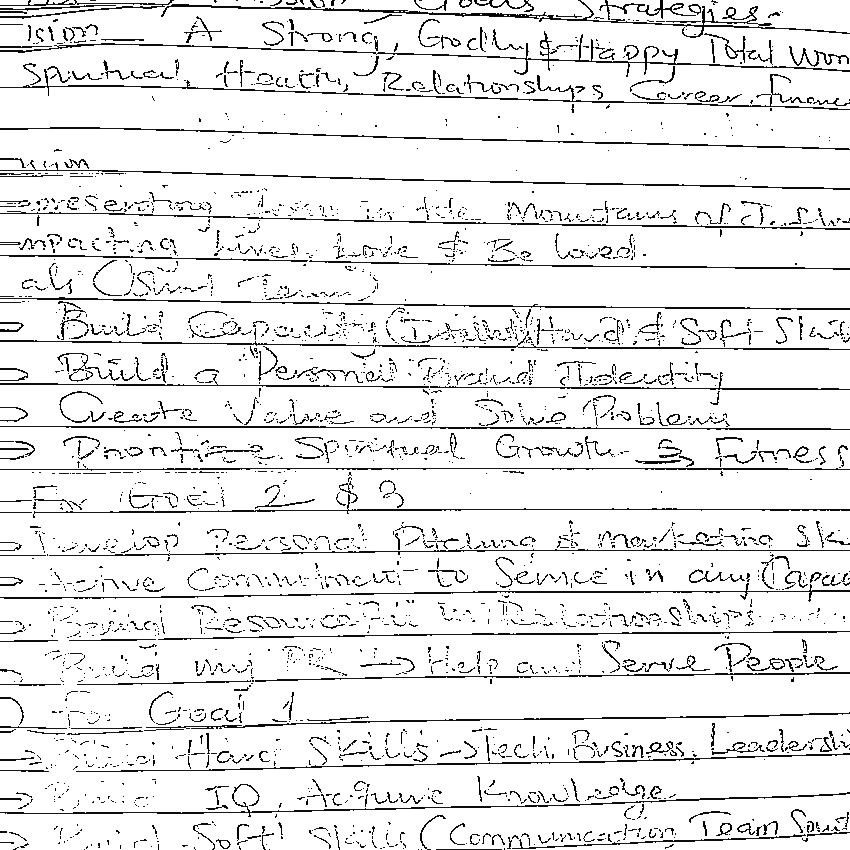 Goals, Strategies-
ision - A Strong, Godly & Happy Total Wom
Spiritual, Health, Relationships, Career, Finance
ission
epresenting Jesus in the Mountains of
mpacting Lives, Love & Be loved.
als (Short Term)
Build Capacity (Hard & Soft Skill
Build a Personal Brand Identity
Create Value and Solve Problems
Prioritize Spiritual Growth Fitness
For Goal 2 & 3
Develop Personal Pitching & marketing Ski
Active Commitment to Service in any Capac
Being Resourceful in Relationships
Build my PR → Help and Serve People
For Goal 1
→ Build Hard Skills → Tech, Business, Leadershi
→ Build IQ, Acquire Knowledge
→ Build Soft Skills (Communication, Team Spirit